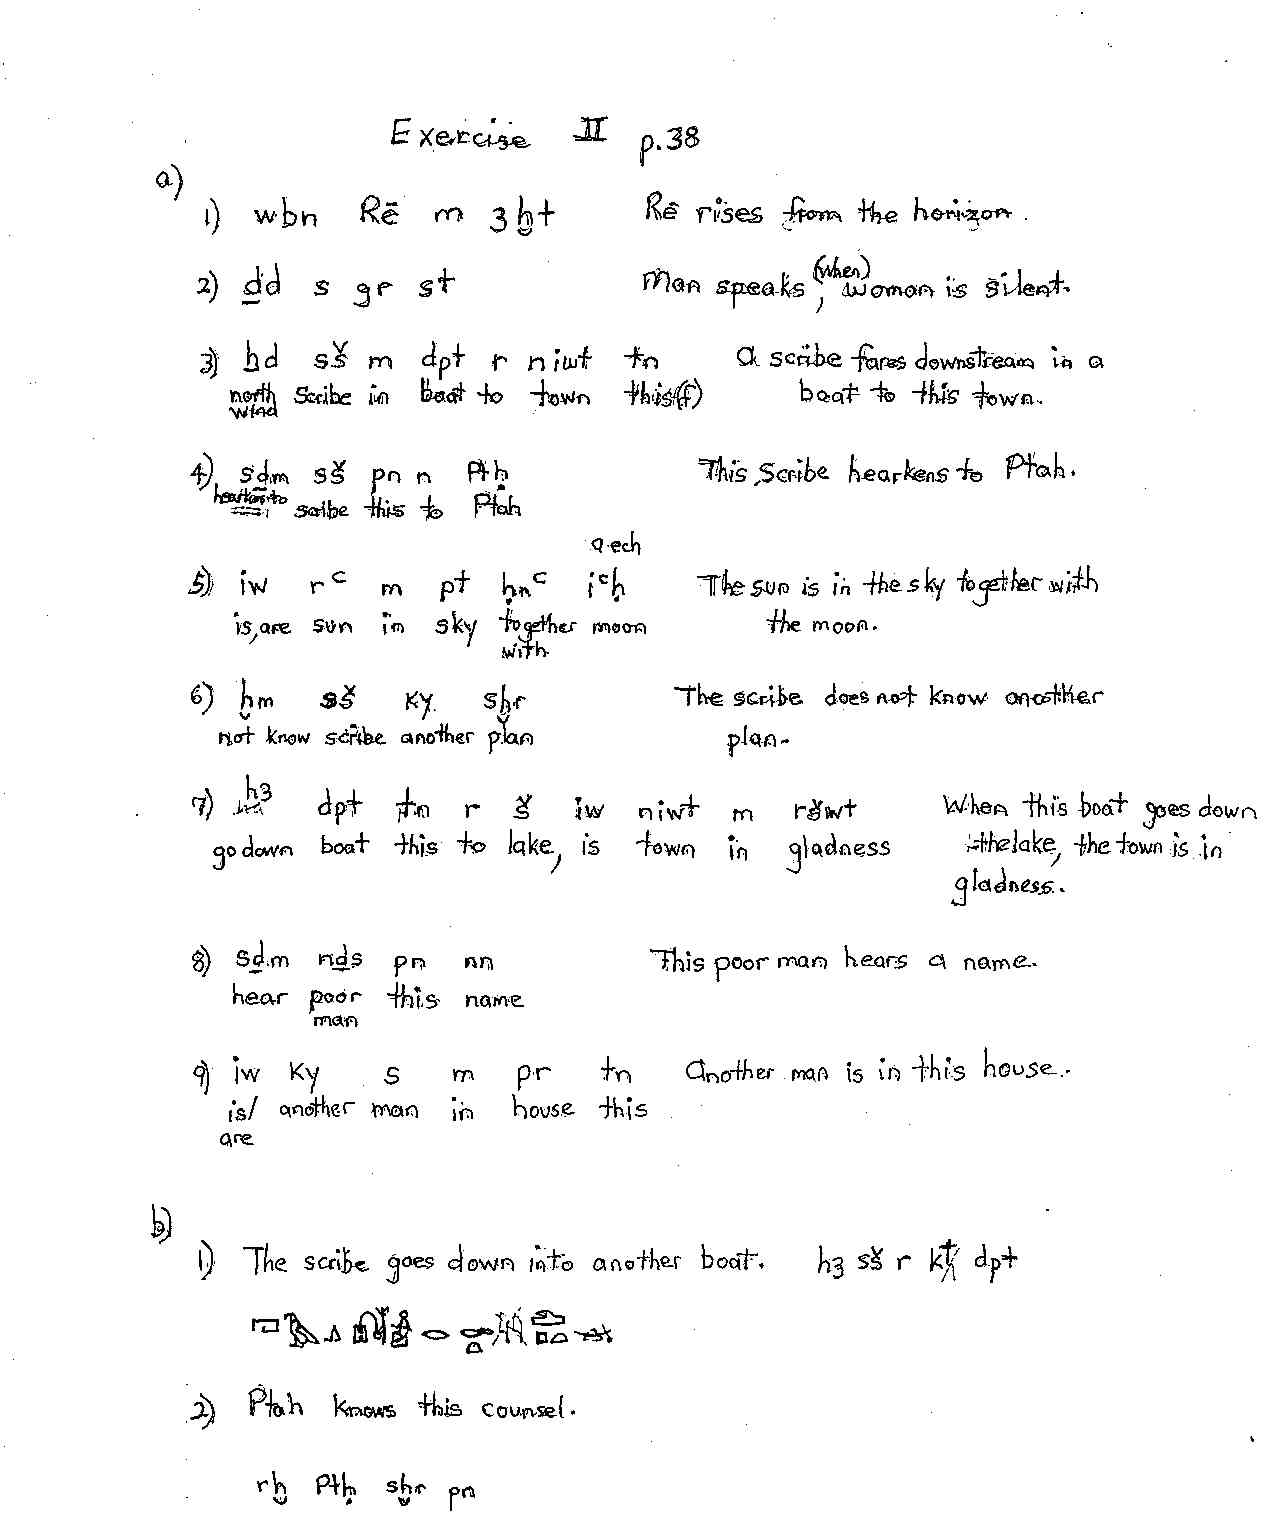 Exercise II p.38
a)
1) wbn Rē m 3ḫt Rē rises from the horizon.
2) ḏd s gr st Man speaks, (when) woman is silent.
3) ḫd sš m dpt r niwt tn A scribe fares downstream in a
north wind scribe in boat to town this(f) boat to this town.
4) sḏm sš pn n Ptḥ This scribe hearkens to Ptah.
hearken to scribe this to Ptah
a ech
5) iw rᶜ m pt ḥnᶜ iᶜḥ The sun is in the sky together with
is, are sun in sky together with moon the moon.
6) ḫm sš ky sḫr The scribe does not know another
not know scribe another plan plan.
7) h3 dpt tn r š iw niwt m ršwt When this boat goes down
go down boat this to lake, is town in gladness the lake, the town is in
gladness.
8) sḏm nḏs pn nn This poor man hears a name.
hear poor man this name
9) iw ky s m pr tn Another man is in this house.
is/are another man in house this
b)
1) The scribe goes down into another boat. h3 sš r kt dpt
2) Ptah knows this counsel.
rḫ Ptḥ sḫr pn